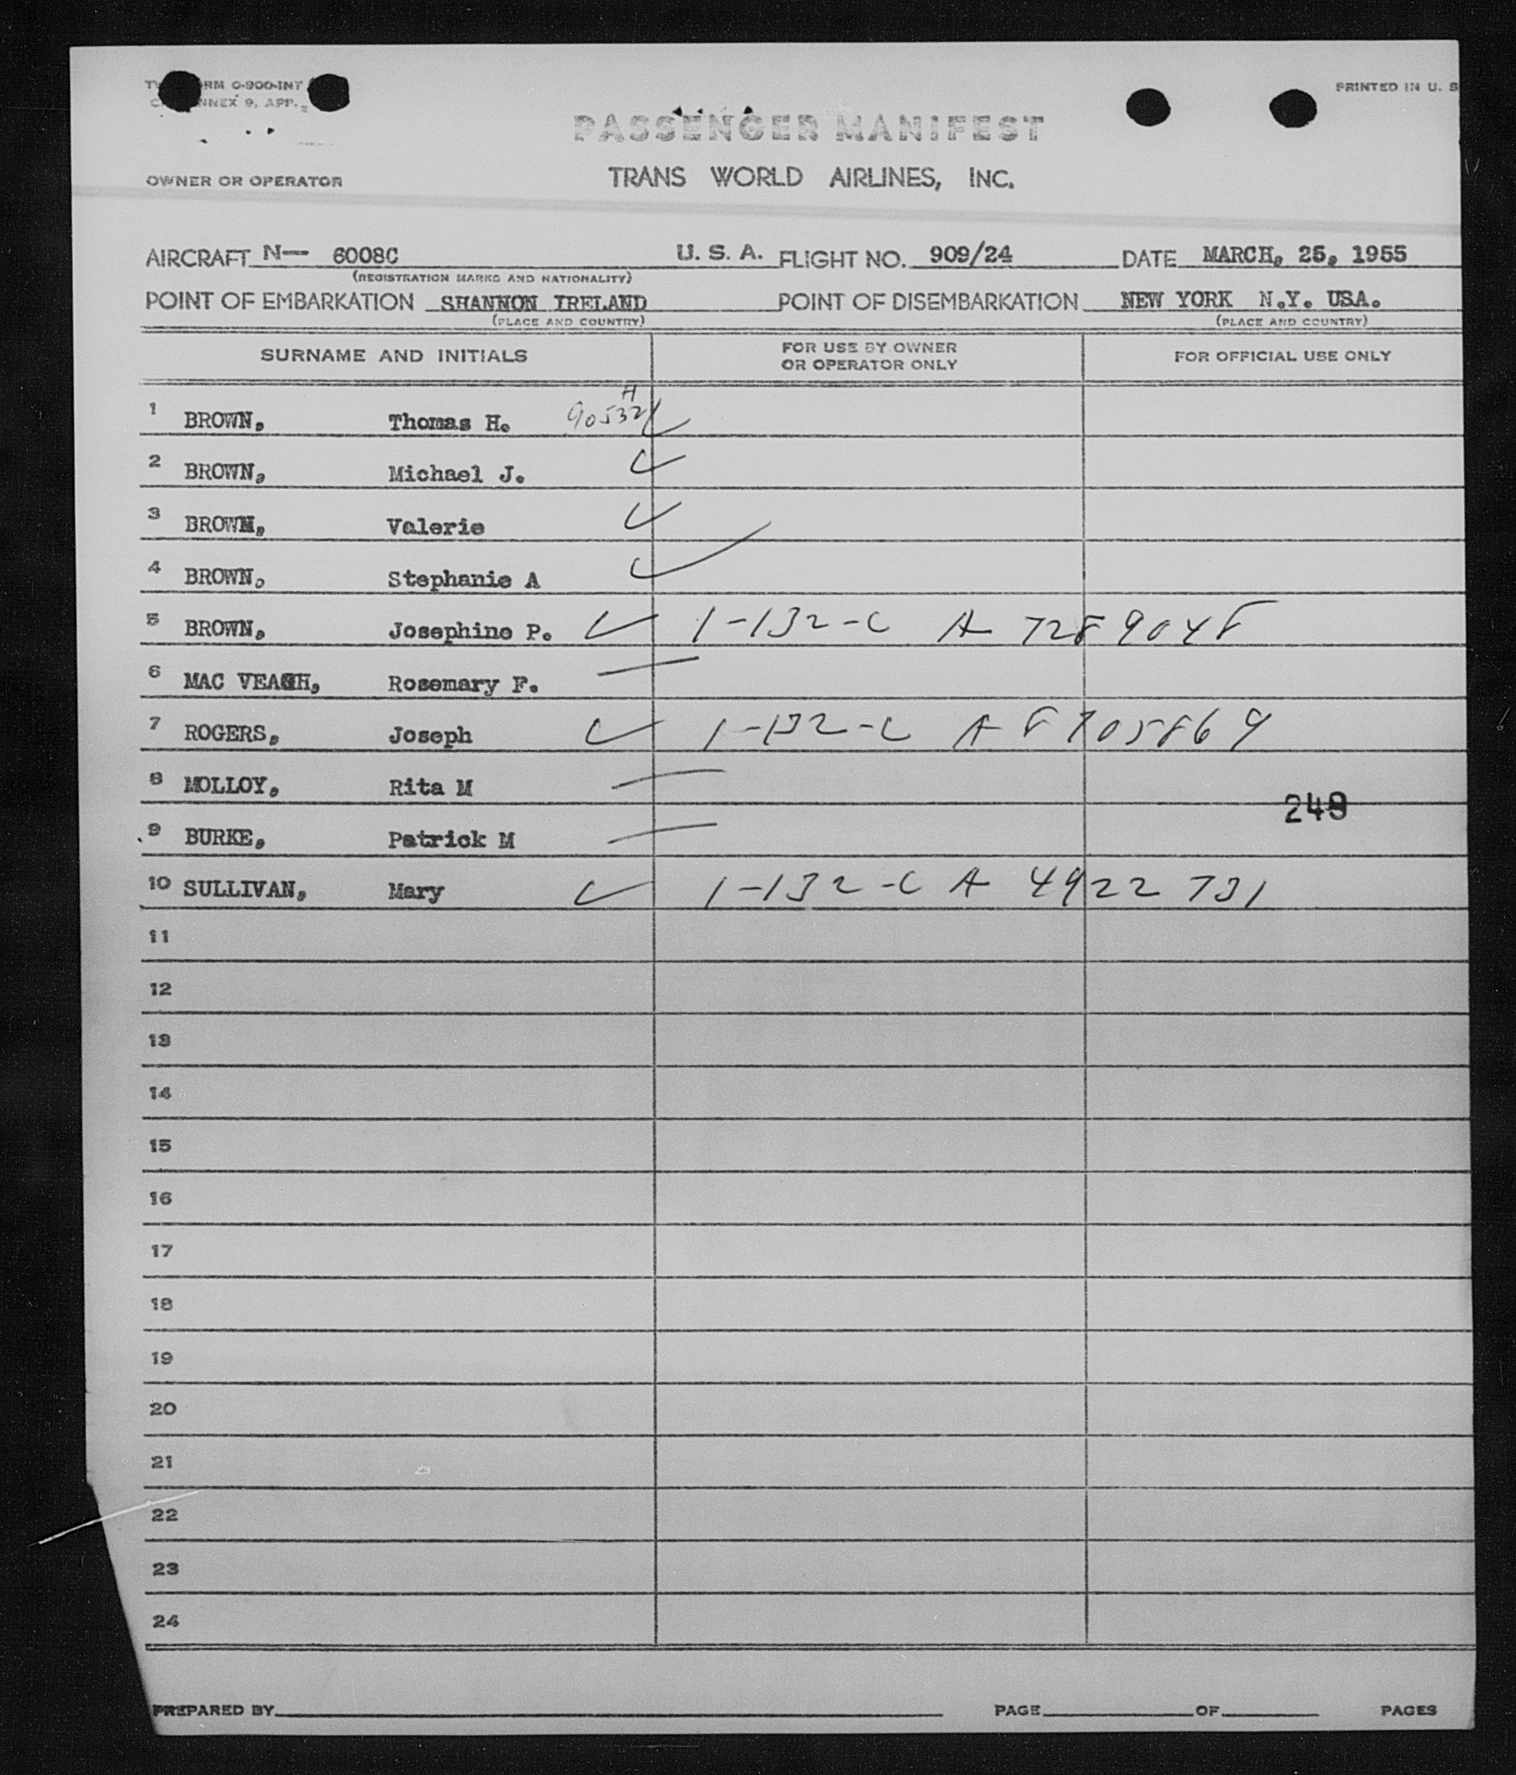 PRINTED IN U. S
NNEX 9, APP. 2
PASSENGER MANIFEST
OWNER OR OPERATOR TRANS WORLD AIRLINES, INC.
AIRCRAFT N— 6008C U. S. A. FLIGHT NO. 909/24 DATE MARCH, 25, 1955
(REGISTRATION MARKS AND NATIONALITY)
POINT OF EMBARKATION SHANNON IRELAND POINT OF DISEMBARKATION NEW YORK N.Y. USA.
(PLACE AND COUNTRY) (PLACE AND COUNTRY)
SURNAME AND INITIALS FOR USE BY OWNER OR OPERATOR ONLY FOR OFFICIAL USE ONLY
1 BROWN, Thomas H.
2 BROWN, Michael J.
3 BROWN, Valerie
4 BROWN, Stephanie A
5 BROWN, Josephine P. 1-132-C A 7289048
6 MAC VEAGH, Rosemary F.
7 ROGERS, Joseph 1-132-C A 8705869
8 MOLLOY, Rita M
249
9 BURKE, Patrick M
10 SULLIVAN, Mary 1-132-C A 4922731
11
12
13
14
15
16
17
18
19
20
21
22
23
24
PREPARED BY PAGE OF PAGES